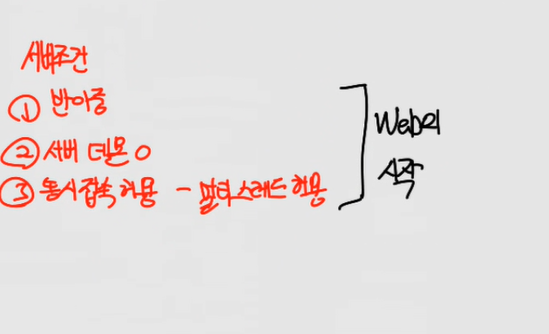 서버조건
① 반이중
② 서버 데몬 O
③ 동시접속 허용 - 멀티스레드 허용
Web의
시작